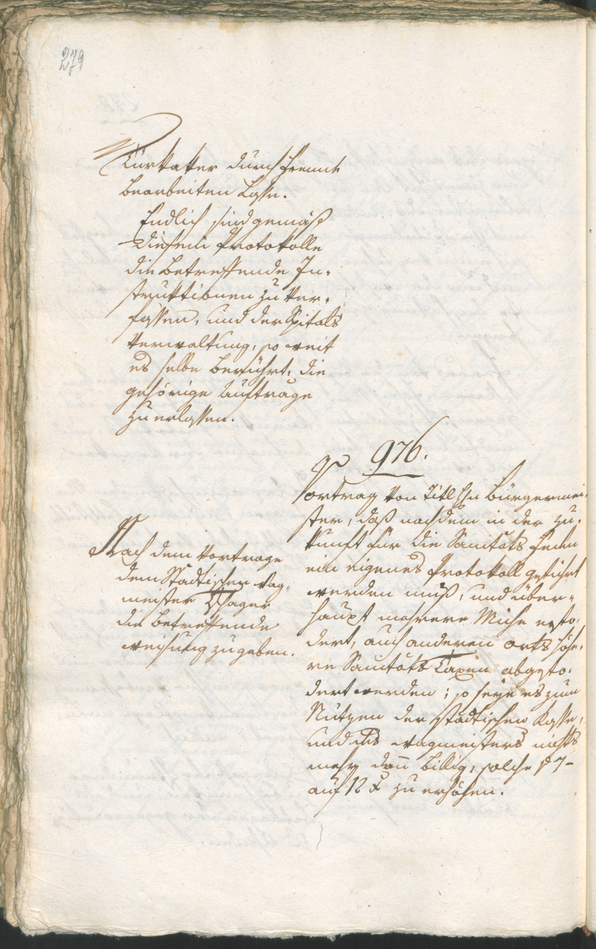 279
Kurkater durch Fremte
bearbeiten lasse.
Endlich sind gemäß
diesem Protokolle
die betreffende In-
struktionen zu ver-
fassen, und der Spitals
Verwaltung, so weit
es selbe berührt, die
gehörige Aufträge
zu erlassen.
976.
Vortrag von Titl Hn Bürgermei-
ster, daß nachdem in der Zu-
kunft für die Sanitäts
ein eigenes Protokoll geführt
werden muß, und über-
haupt mehrere Mühe erfo-
dert, auch anderen orts höhe-
re Sanitäts Taxen abgefo-
dert werden; so seye es zum
Nutzen der städtischen Kasse,
und des wagmeisters nichts
mehr dann billig, solche
auf 12 x zu erhöhen.
Nach dem Vortrage
dem Städtischen Wag-
meister
die betreffende
weisung zu geben.